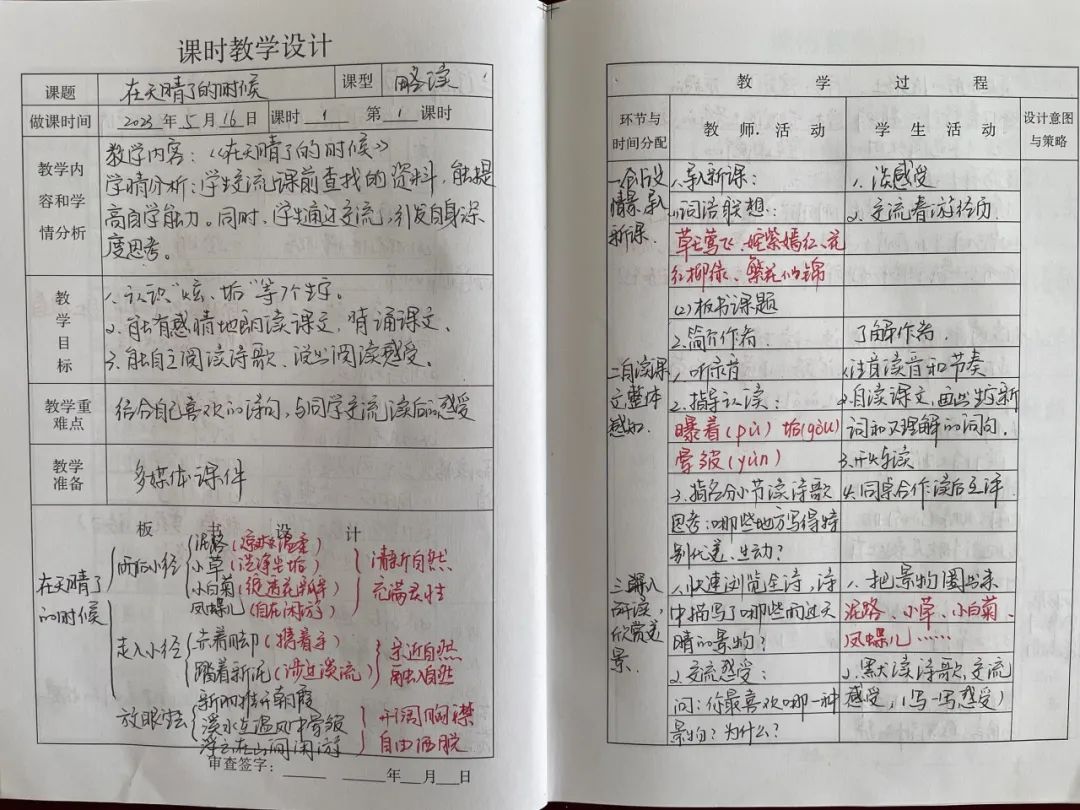 课时教学设计
课题 在天晴了的时候 课型 略读
做课时间 2023年5月16日 课时 1 第 1 课时
教学内容和学情分析
教学内容：《在天晴了的时候》
学情分析：学生交流课前查找的资料，能提
高自学能力。同时，学生通过交流，引发自身深
度思考。
教学目标
1、认识“炫、垢”等7个生字。
2、能有感情地朗读课文，背诵课文。
3、能自主阅读诗歌、说出阅读感受。
教学重难点 结合自己喜欢的诗句，与同学交流读后的感受
教学准备 多媒体课件
板书设计
在天晴了的时候
雨后小径
泥路（凉爽温柔）
小草（洗净尘垢）
小白菊（绽透花瓣）
凤蝶儿（自在闲游）
清新自然
充满灵性
走入小径
赤着脚（携着手）
踏着新泥（涉过溪流）
亲近自然
融入自然
放眼
新雨推开朝霞
溪水点遇风中晕皱
浮云在山间闲游
开阔胸襟
自由洒脱
审查签字：____ ____年__月__日
教学过程
环节与时间分配 教师活动 学生活动 设计意图与策略
情景，导入
新课.
1.导入新课：
词语联想：
草长莺飞、姹紫嫣红、花
红柳绿、繁花似锦
(2)板书课题
2.简介作者
1、谈感受
2、交流春游经历
了解作者.
二.自读课
文，整体
感知.
1、听录音
2.指导认读：
曝着(pù) 垢(gòu)
晕皱(yùn)
3.指名分小节读诗歌
思考：哪些地方写得特
别优美、生动？
1.注意读音和节奏
2.自读课文，画出生字新
词和不理解的词句.
3.开火车读
4.同桌合作读后互评
三.深入
研读，
欣赏美
景.
1、快速浏览全诗，诗
中描写了哪些雨过天
晴的景物？
2.交流感受：
问：你最喜欢哪一种
景物？为什么？
1、把景物圈出来
泥路、小草、小白菊、
凤蝶儿……
2.默读诗歌，交流
感受，（写一写感受）